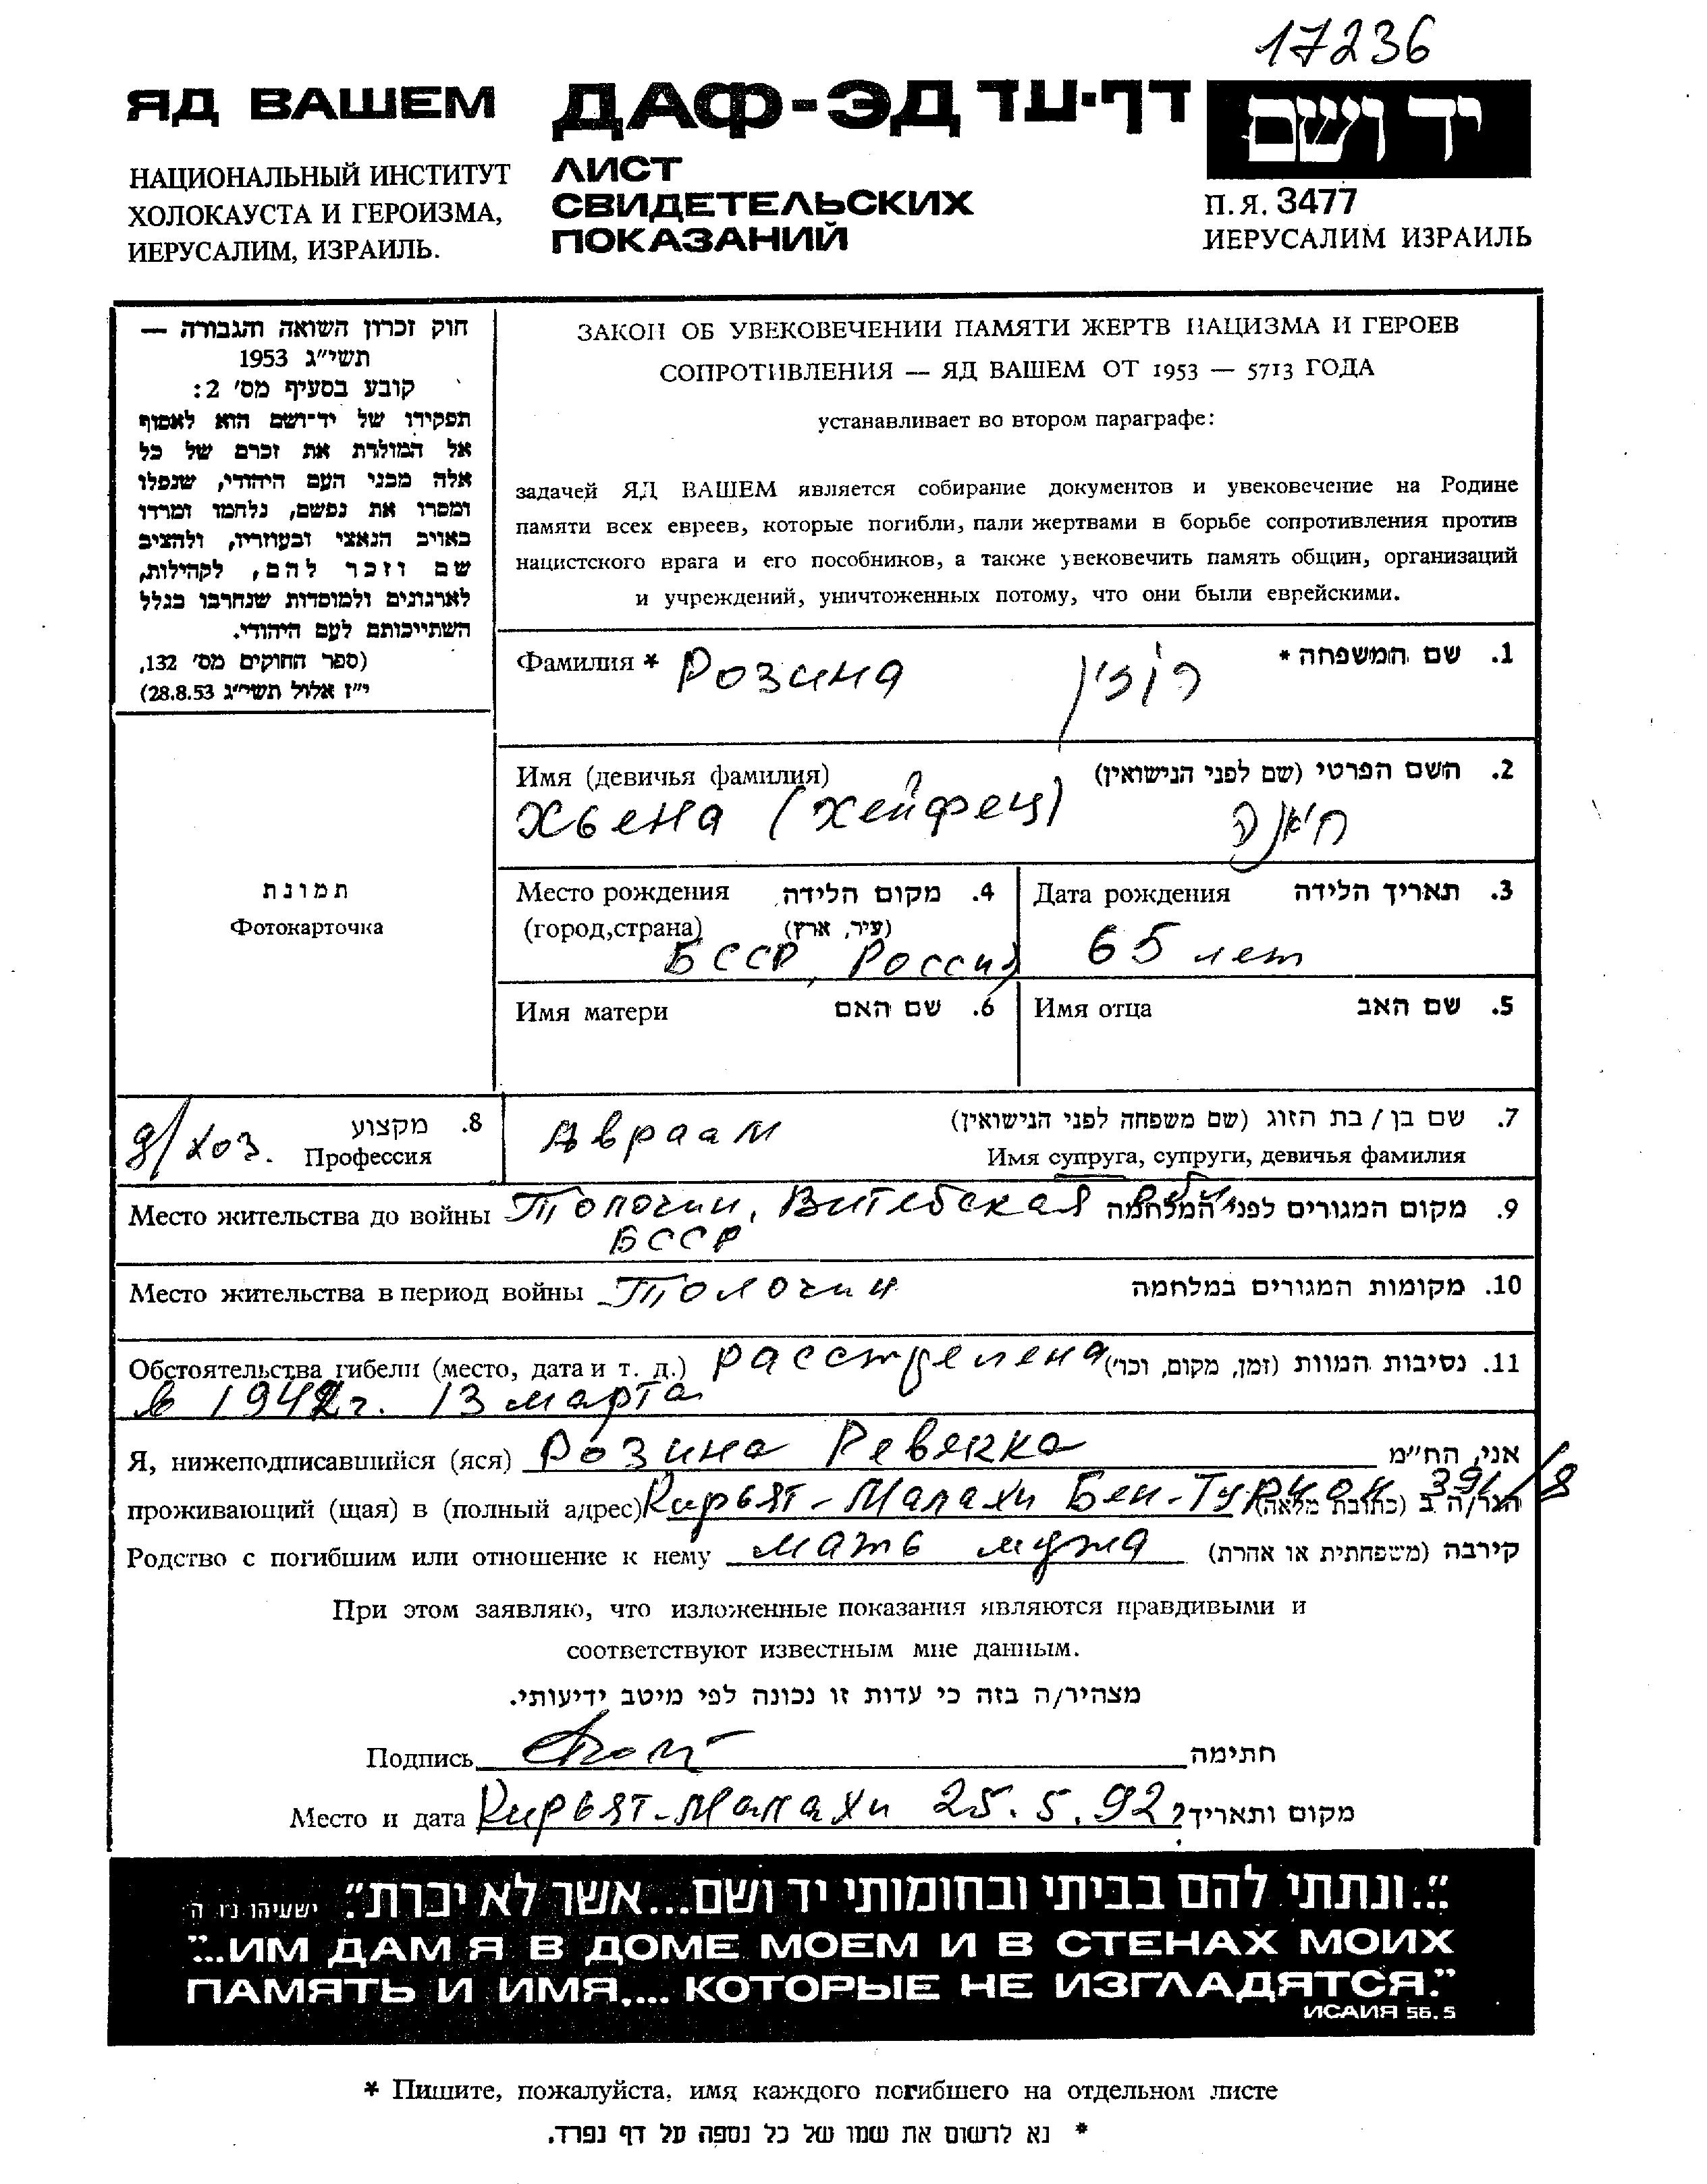 17236
ЯД ВАШЕМ
НАЦИОНАЛЬНЫЙ ИНСТИТУТ
ХОЛОКАУСТА И ГЕРОИЗМА,
ИЕРУСАЛИМ, ИЗРАИЛЬ.
ДАФ-ЭД דף-עד
ЛИСТ
СВИДЕТЕЛЬСКИХ
ПОКАЗАНИЙ
יד ושם
П.Я. 3477
ИЕРУСАЛИМ ИЗРАИЛЬ
חוק זכרון השואה והגבורה —
תשי״ג 1953
קובע בסעיף מס׳ 2:
תפקידו של יד-ושם הוא לאסוף
אל המולדת את זכרם של כל
אלה מבני העם היהודי, שנפלו
ומסרו את נפשם, נלחמו ומרדו
באויב הנאצי ובעוזריו, ולהציב
שם וזכר להם, לקהילות,
לארגונים ולמוסדות שנחרבו בגלל
השתייכותם לעם היהודי.
(ספר החוקים מס׳ 132,
י״ז אלול תשי״ג 28.8.53)
ЗАКОН ОБ УВЕКОВЕЧЕНИИ ПАМЯТИ ЖЕРТВ НАЦИЗМА И ГЕРОЕВ
СОПРОТИВЛЕНИЯ — ЯД ВАШЕМ ОТ 1953 — 5713 ГОДА
устанавливает во втором параграфе:
задачей ЯД ВАШЕМ является собирание документов и увековечение на Родине
памяти всех евреев, которые погибли, пали жертвами в борьбе сопротивления против
нацистского врага и его пособников, а также увековечить память общин, организаций
и учреждений, уничтоженных потому, что они были еврейскими.
Фамилия * Розина רוזין 1. שם המשפחה *
Имя (девичья фамилия) 2. השם הפרטי (שם לפני הנישואין)
Хьена (Хейфец) חיאנה
תמונת
Фотокарточка
Место рождения 4. מקום הלידה
(город,страна) (עיר, ארץ)
БССР, Россия
Дата рождения 3. תאריך הלידה
65 лет
Имя матери 6. שם האם
Имя отца 5. שם האב
8. מקצוע
д/хоз. Профессия
Авраам 7. שם בן / בת הזוג (שם משפחה לפני הנישואין)
Имя супруга, супруги, девичья фамилия
Место жительства до войны Толочин, Витебская обл. 9. מקום המגורים לפני המלחמה
БССР
Место жительства в период войны Толочин 10. מקומות המגורים במלחמה
Обстоятельства гибели (место, дата и т. д.) расстрелена 11. נסיבות המוות (זמן, מקום, וכו׳)
в 1942г. 13 марта
Я, нижеподписавшийся (яся) Розина Ревекка אני, הח״מ
проживающий (щая) в (полный адрес) Кирьят-Малахи Бен-Гурион 391/8 הגר/ה ב (כתובת מלאה)
Родство с погибшим или отношение к нему мать мужа קירבה (משפחתית או אחרת)
При этом заявляю, что изложенные показания являются правдивыми и
соответствуют известным мне данным.
מצהיר/ה בזה כי עדות זו נכונה לפי מיטב ידיעותי.
Подпись חתימה
Место и дата Кирьят-Малахи 25.5.92 מקום ותאריך
״...ונתתי להם בביתי ובחומותי יד ושם...אשר לא יכרת.״ ישעיהו נ״ו ה
"...ИМ ДАМ Я В ДОМЕ МОЕМ И В СТЕНАХ МОИХ
ПАМЯТЬ И ИМЯ.... КОТОРЫЕ НЕ ИЗГЛАДЯТСЯ."
ИСАИЯ 56.5
* Пишите, пожалуйста, имя каждого погибшего на отдельном листе
* נא לרשום את שמו של כל נספה על דף נפרד.